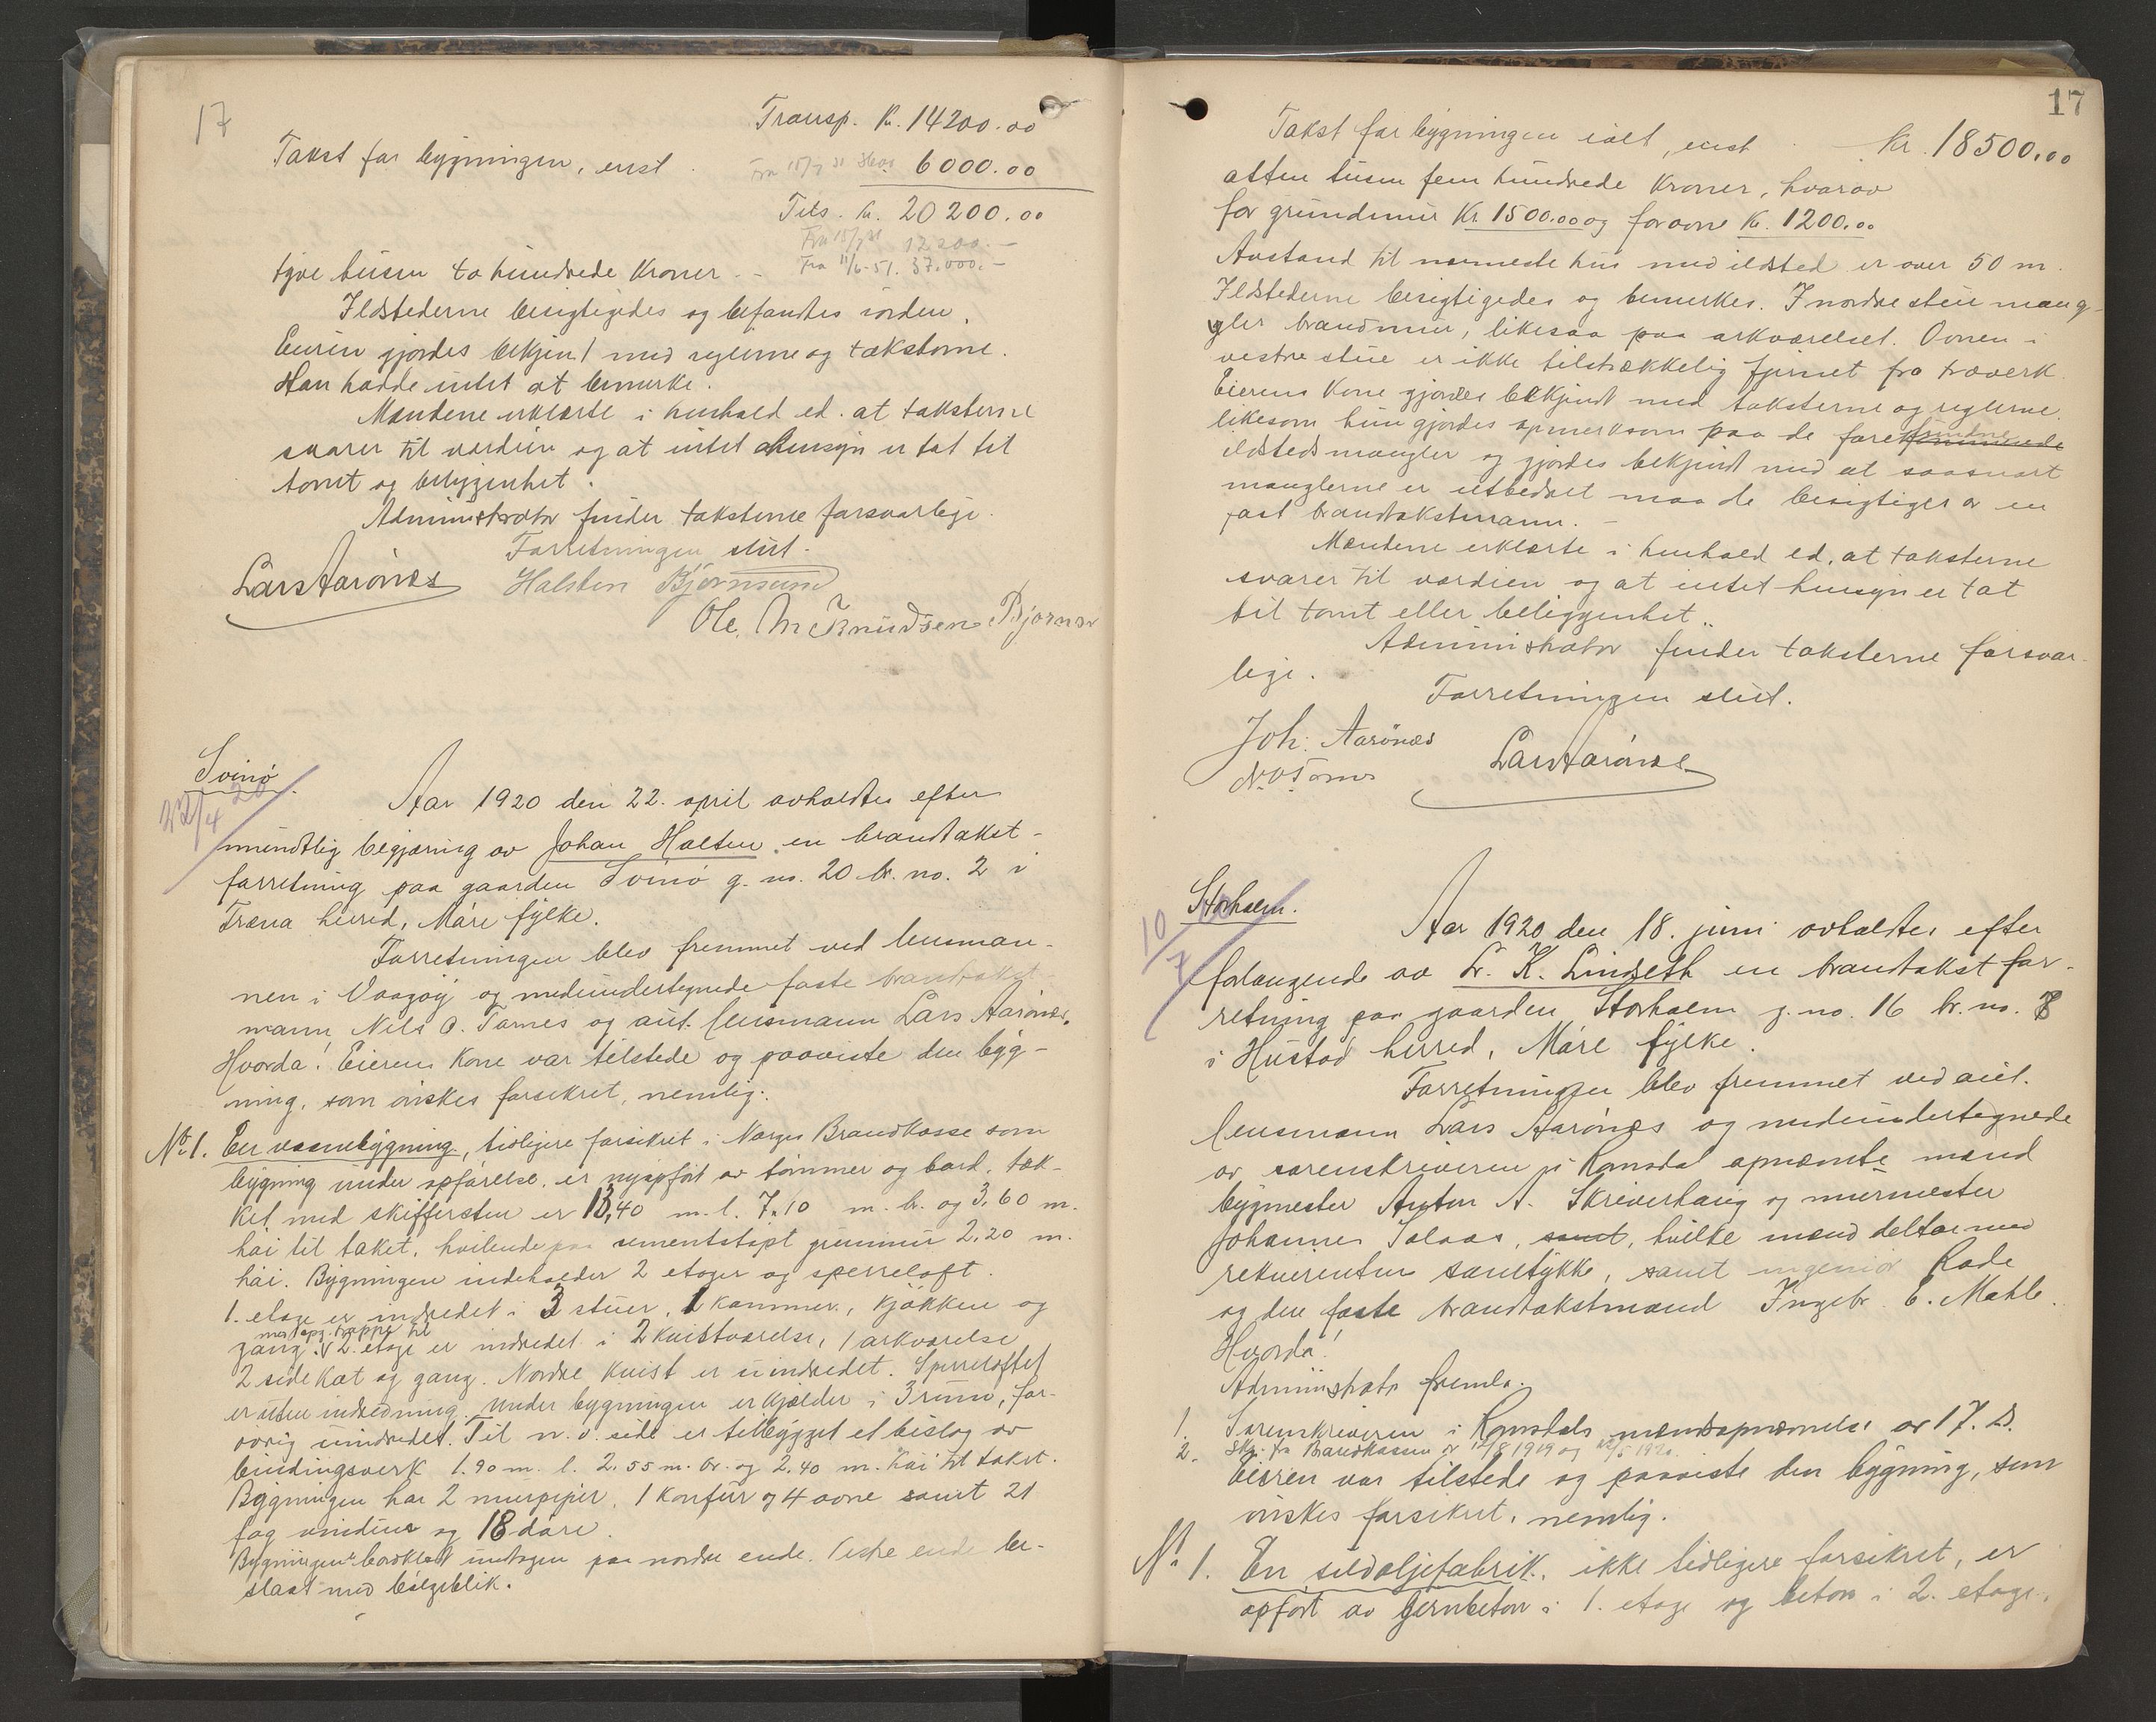 17
Transp. Kr. 14200.00
Takst for bygningen, enst. Fra 15/7 31 6000.00
Tils. Kr. 20200.00
Fra 15/7 31 12200.–
Fra 11/6-51. 37.000.–
tyve tusen to hundrede Kroner. –
Ildstederne besigtigedes og befandtes iorden.
Eieren gjordes bekjent med reglerne og taksterne.
Han hadde intet at bemerke.
Mændene erklærte i henhold ed. at taksterne
svarer til værdien og at intet hensyn er tat til
tomt og beliggenhet.
Administrator finder taksterne forsvarlige.
Forretningen slut.
Lars Aarønæs Halsten Bjørnsund
Ole M. Knudsen Bjørnsv
Svinø
22/4 20
Aar 1920 den 22. april avholdtes efter
mundtlig begjæring av Johan Holten en brandtakst-
forretning paa gaarden Svinø g. no. 20 br. no. 2 i
Fræna herred, Møre fylke.
Forretningen blev fremmet ved lensman-
nen i Vaagøy og medundertegnede faste brandtakst-
mann, Nils O. Tornes og aut. lensmann Lars Aarønæs.
Hvorda! Eierens kone var tilstede og paaviste den byg-
ning, som ønskes forsikret, nemlig:
No 1. En vaanebygning, tidligere forsikret i Norges Brandkasse som
bygning under opførelse, er nyopført av tømmer og bord, tæk-
ket med skiffersten er 13,40 m. l. 7.10 m. br. og 3,60 m.
høi til taket, hvilende paa sementstøpt grunmur 2,20 m.
høi. Bygningen indeholder 2 etager og sperreloft.
1. etage er indredet i 3 stuer, 1 kammer, kjøkken og
med opg. trappe til
gang. 2. etage er indredet i 2 kvistværelse, 1 arkværelse
2 sidekot og gang. Nordre kvist er uindredet. Sperreloftet
er uten indredning. Under bygningen er kjælder i 3 rum, for-
øvrig uindredet. Til n. v. side er tilbygget et bislag av
bindingsverk 1.90 m. l. 2.55 m. br. og 2.40 m. høi til taket.
Bygningen har 2 murpiper, 1 konfur og 4 ovne samt 21
fag vinduer og 18 døre.
Bygningen bordklædt undtagen paa nordre ende. Vestre ende be-
slaat med bølgeblik.
17
Takst for bygningen ialt, enst Kr. 18500.00
atten tusen fem hundrede Kroner, hvorav
for grundmur Kr. 1500.00 og for ovne Kr. 1200.00
Avstand til nærmeste hus med ildsted er over 50 m.
Ildstederne besigtigedes og bemerkes. I nordre stue mang-
gler brandmur, likesaa paa arkværelset. Ovnen i
vestre stue er ikke tilstrækkelig fjernet fra træverk.
Eierens kone gjordes bekjendt med taksterne og reglerne.
likesom hun gjordes opmerksom paa de forefundne
ildstedsmangler og gjordes bekjendt med at saasnart
manglerne er utbedret maa de besigtiges av en
fast brandtakstmann. –
Mændene erklærte i henhold ed, at taksterne
svarer til værdien og at intet hensyn er tat
til tomt eller beliggenhet.
Administrator finder taksterne forsvar-
lige.
Forretningen slut.
Joh. Aarønæs Lars Aarønæs
N. O. Tornes
Storholm.
10/7 20
Aar 1920 den 18. juni avholdtes efter
forlangende av Lr. K. Lindseth en brandtakstfor-
retning paa gaarden Storholm g. no. 16 br. no. 8
i Hustad herred, Møre fylke.
Forretningen blev fremmet ved aut.
lensmann Lars Aarønæs og medundertegnede
av sorenskriveren i Romsdal opnævnte mænd
bygmester Anton A. Skriverhaug og murmester
Johannes Solaas, samt, hvilke mænd deltar med
rekvirentens samtykke, samt ingeniør Rode
og den faste brandtakstmand Ingebr. E. Mahle.
Hvorda!
Administrator fremla.
1. Sorenskriveren i Romsdals mændsopnævnelse av 17. ds.
2. Skr. fra Brandkassen av 12/8 1919 og 12/5 1920.
Eieren var tilstede og paaviste den bygning, som
ønskes forsikret, nemlig.
No 1. En sildoljefabrik, ikke tidligere forsikret, er
opført av jernbeton i 1. etage og beton i 2. etage.